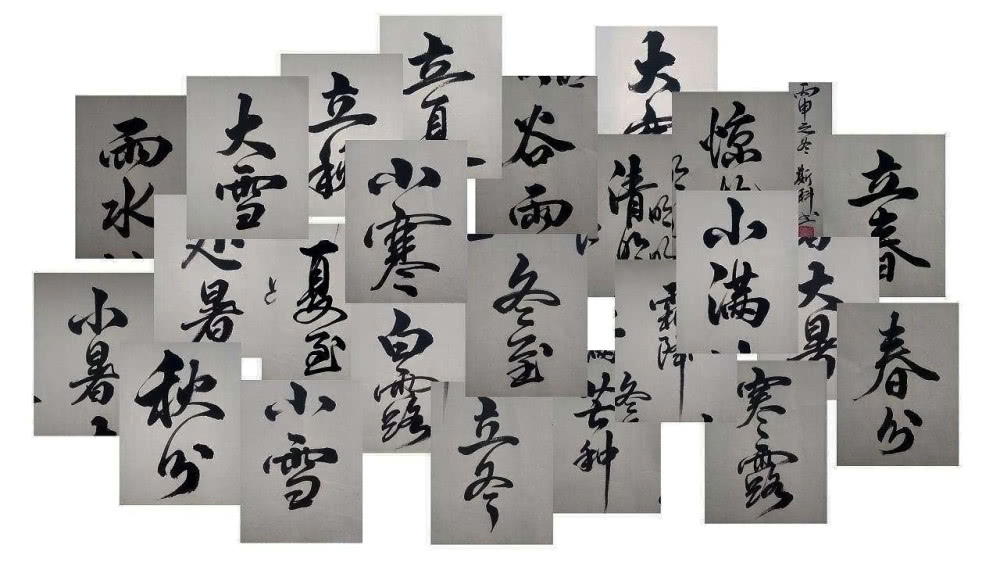 立夏
大
立秋
大雪
雨水
谷雨
惊
丙申之冬 斯科
清明
小寒
立春
小满
处暑
夏至
冬至
大暑
霜降
小暑
白露
春分
秋分
小雪
立冬
芒种
冬
寒露